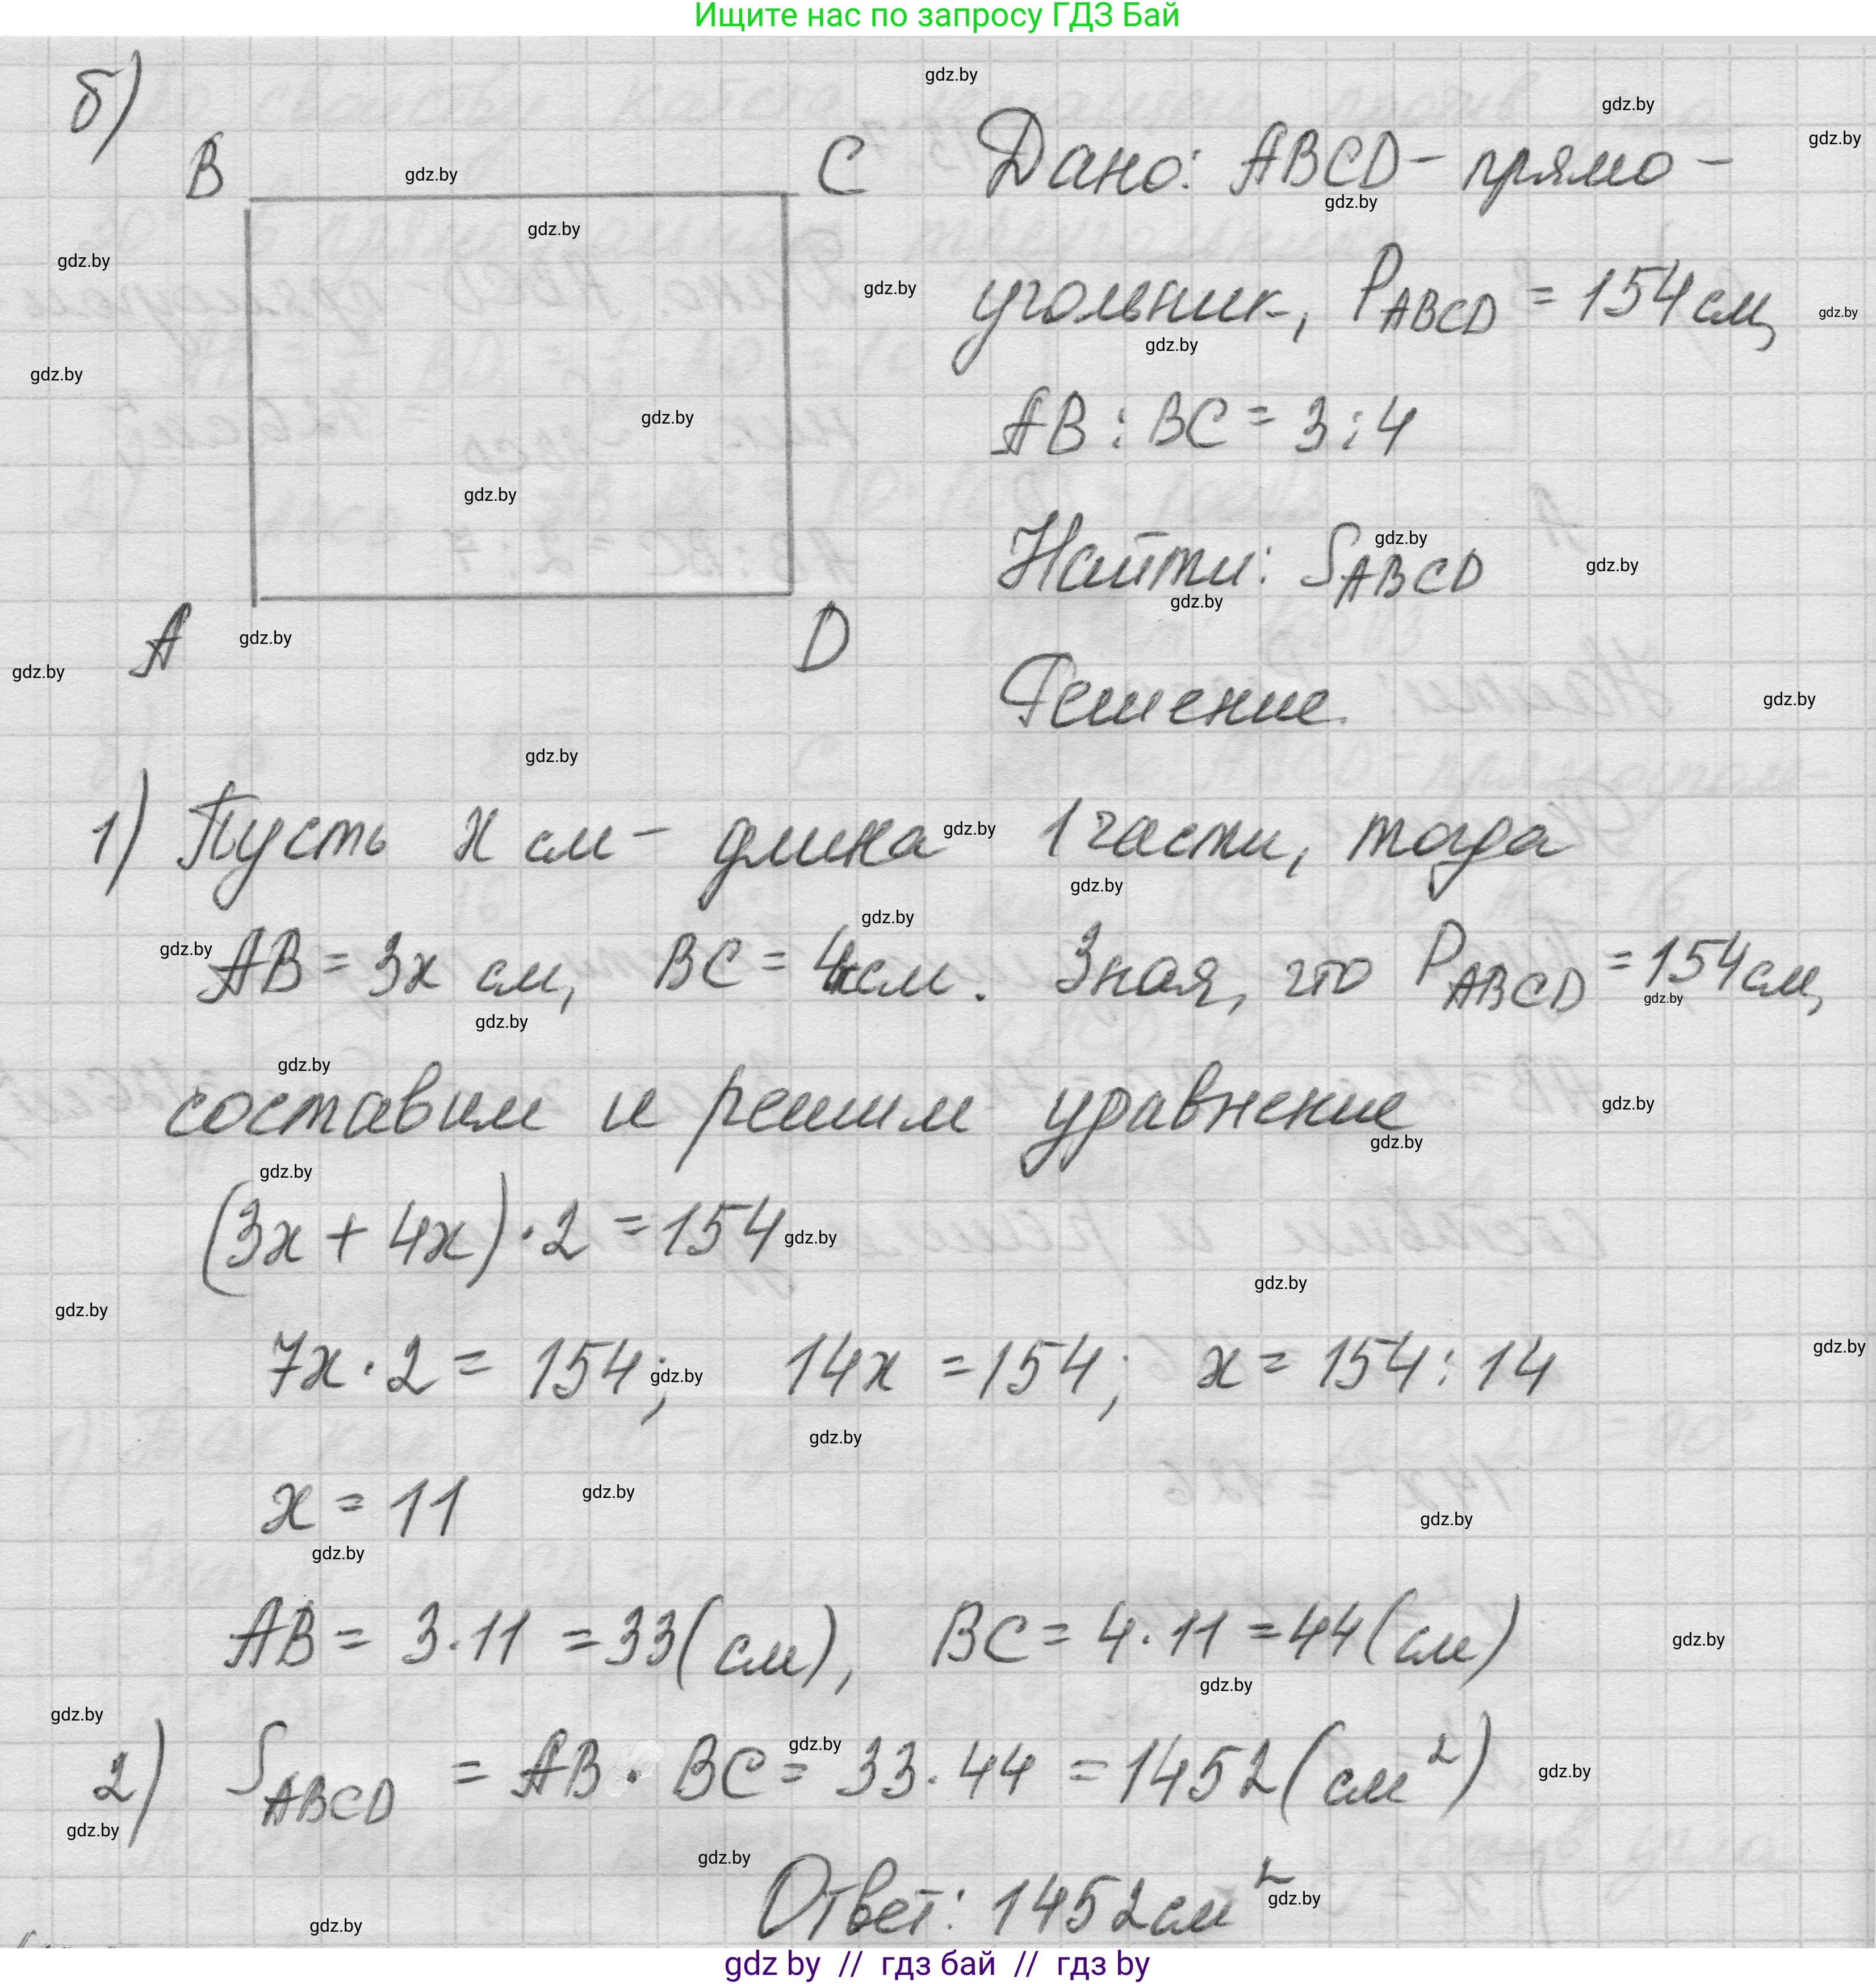 Ищите нас по запросу ГДЗ Бай
б)
B
C
A
D
Дано: ABCD - прямо-
угольник, P_ABCD = 154 см,
AB : BC = 3 : 4
Найти: S_ABCD
Решение.
1) Пусть x см - длина 1 части, тогда
AB = 3x см, BC = 4x см. Зная, что P_ABCD = 154 см,
составим и решим уравнение
(3x + 4x) · 2 = 154
7x · 2 = 154; 14x = 154; x = 154 : 14
x = 11
AB = 3 · 11 = 33 (см), BC = 4 · 11 = 44 (см)
2) S_ABCD = AB · BC = 33 · 44 = 1452 (см²)
Ответ: 1452 см²
gdz by // гдз бай // гдз by